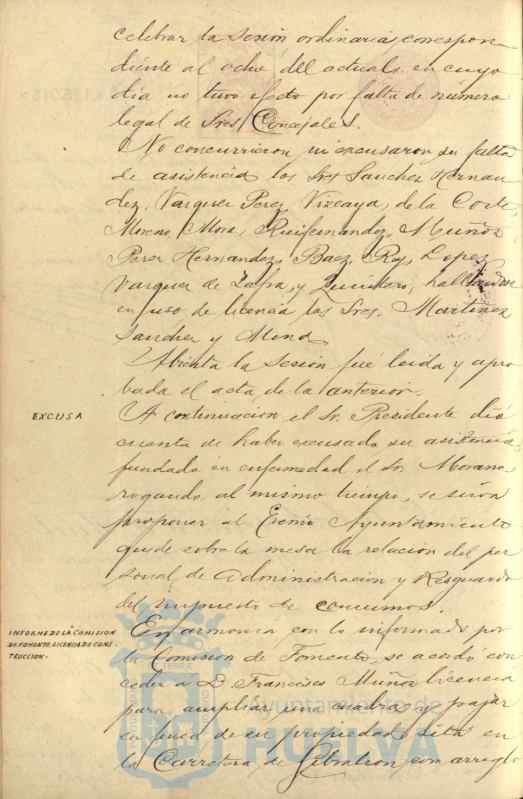 celebrar la sesión ordinaria correspon
diente al ocho del actual, en cuyo
día no tuvo efecto por falta de numero
legal de Sres Concejales.
No concurrieron ni excusaron su falta
de asistencia los Sres Sanchez Hernan
dez, Vazquez Perez, Vizcaya, de la Corte,
Moreno, Mora, Ruifernandez, Muñoz
Perez Hernandez, Baez, Rey, Lopez,
Vazquez de Zafra, y Quintero, hallandose
en uso de licencia los Sres. Martinez
Sanchez y
Abierta la sesión fué leida y apro
bada el acta de la anterior.
EXCUSA
A continuacion el Sr. Presidente dió
cuenta de haber excusado su asistencia,
fundado en enfermedad el Sr. Morano,
rogando al mismo tiempo, se sirva
proponer al Excmo Ayuntamiento
quede sobre la mesa la relacion del per
sonal de Administracion y Resguardo
del impuesto de consumos.
INFORME DE LA COMISION
DE FOMENTO, LICENCIA DE CONS-
TRUCCION.
En armonia con lo informado por
la Comision de Fomento, se acordó con
ceder á D. Francisco Muñoz licencia
para ampliar una cuadra y pajar
en finca de su propiedad sita en
la Carretera de Gibraleon con arreglo
Ayuntamiento de
HUELVA